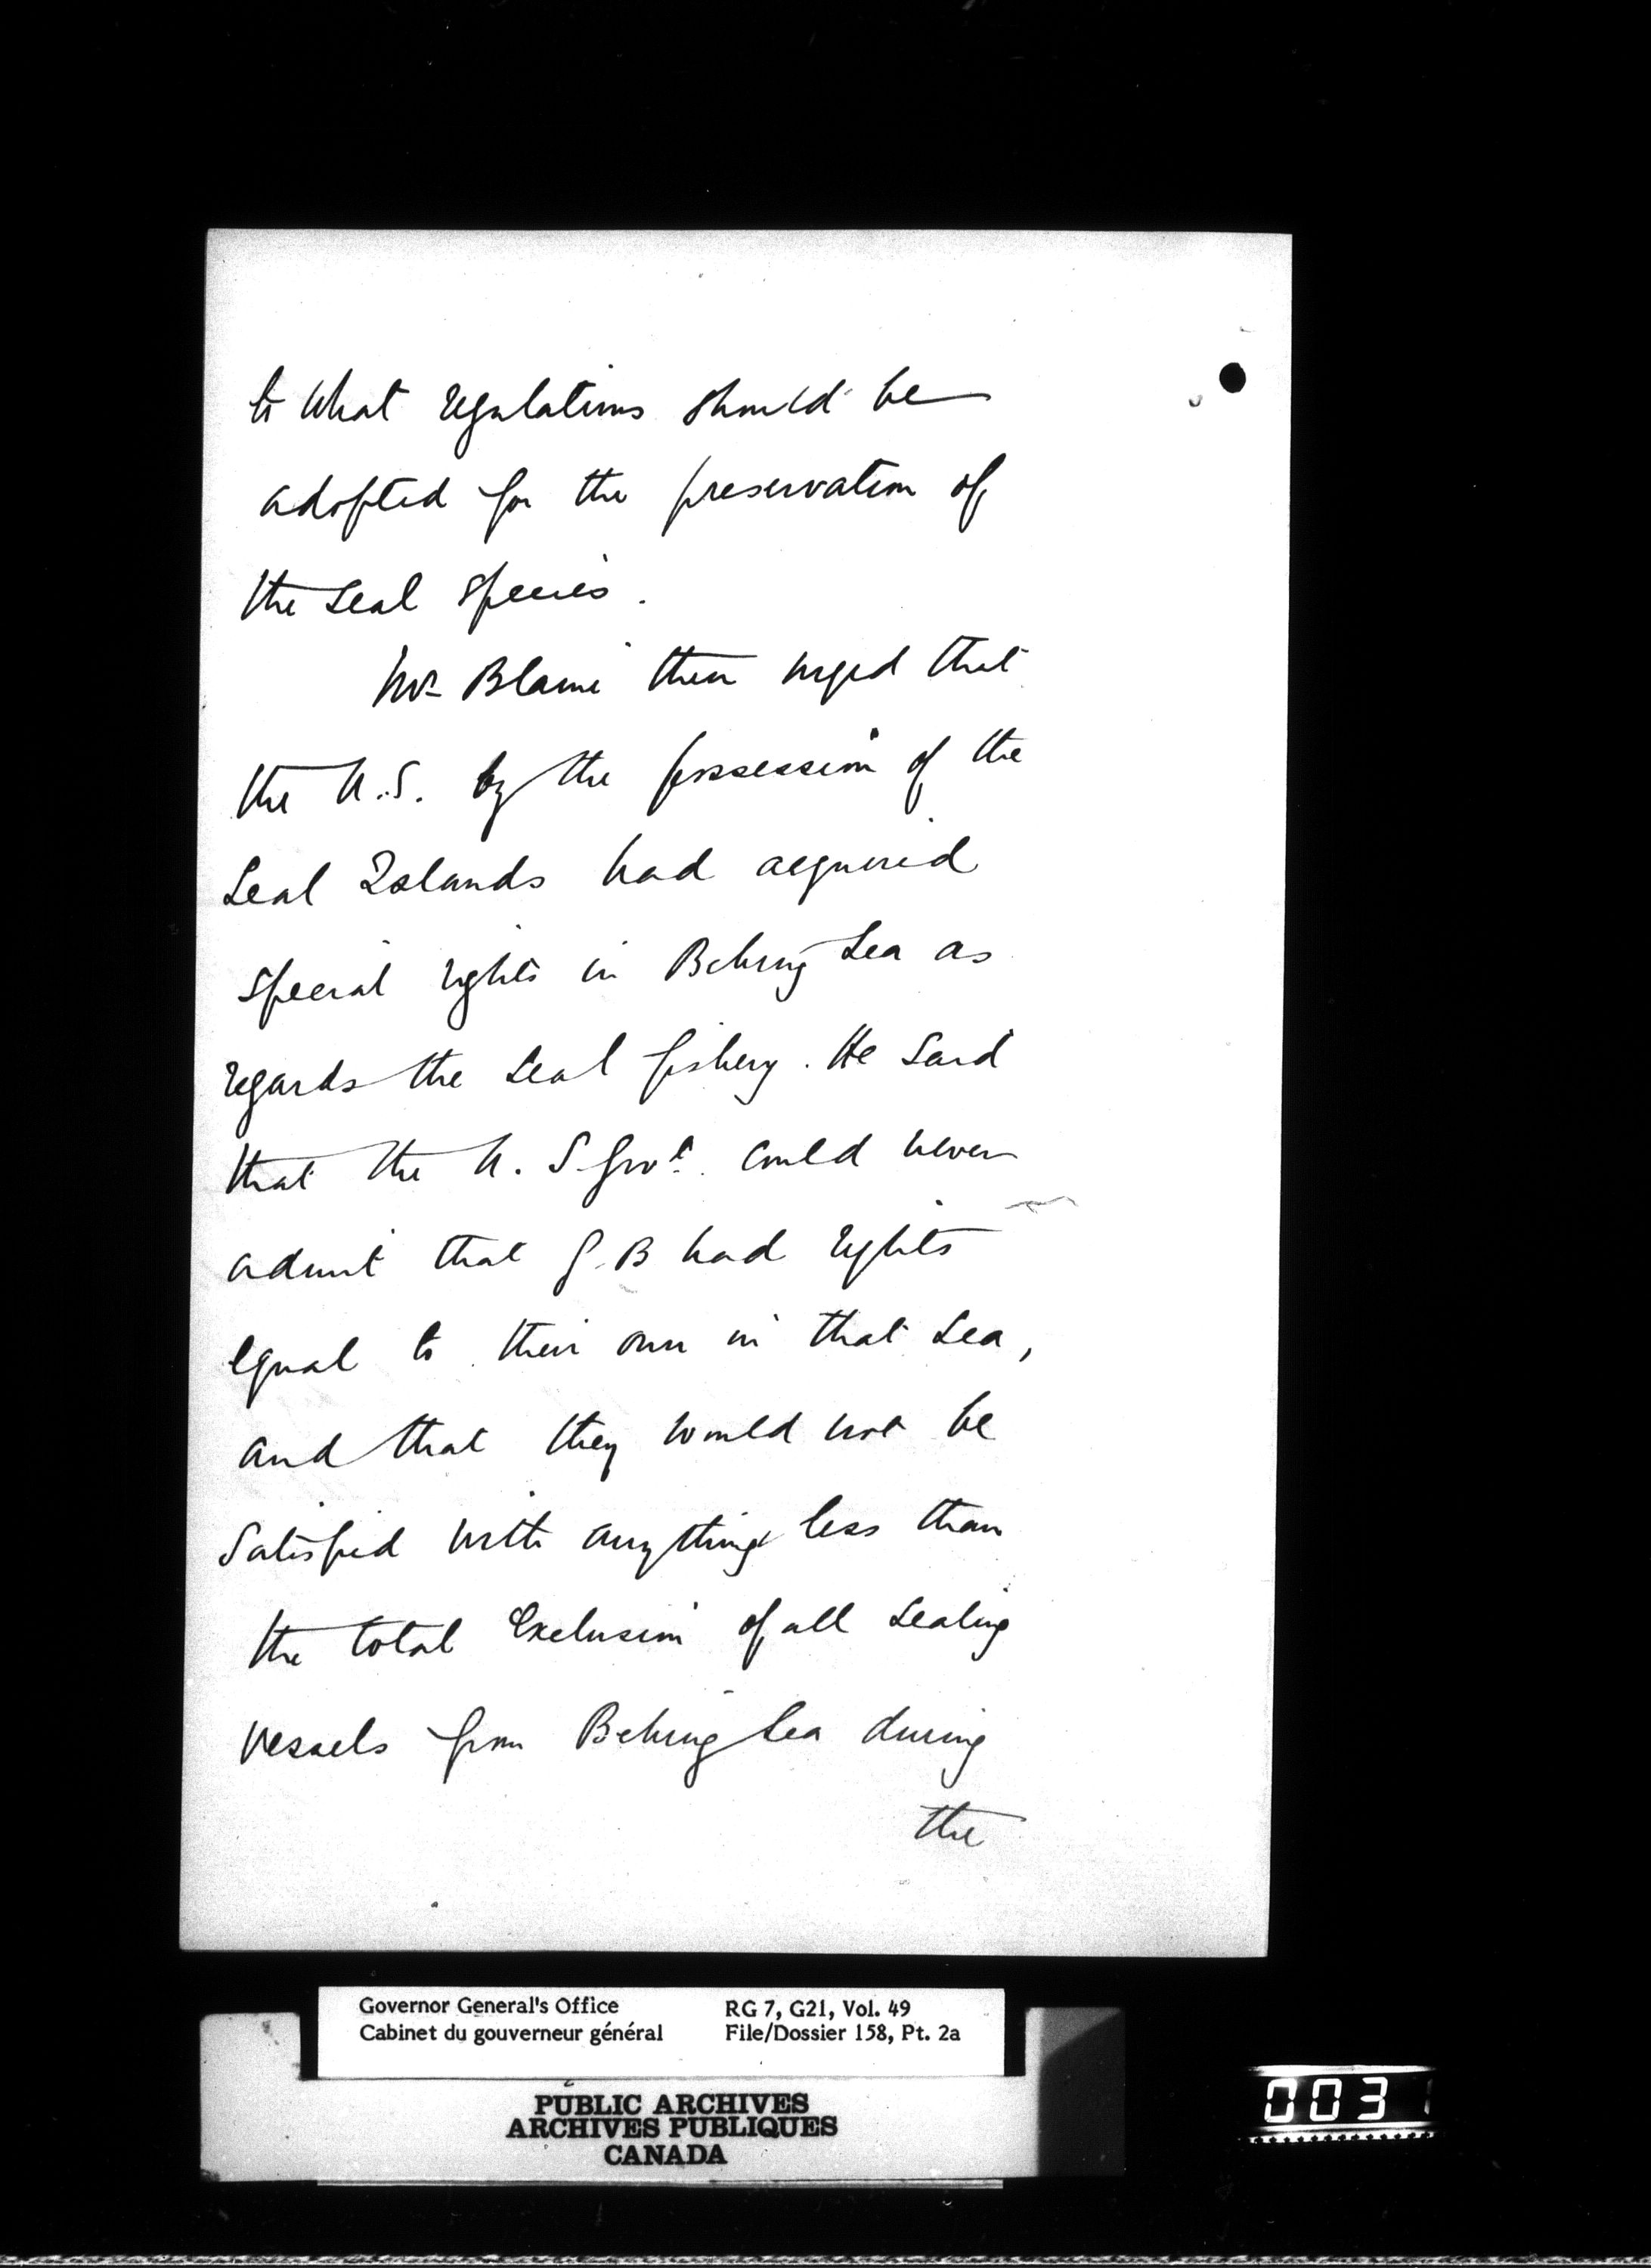 to what regulations should be
adopted for the preservation of
the Seal Species.
Mr Blaine then urged that
the U.S. by the possession of the
Seal Islands had acquired
special rights in Behring Sea as
regards the Seal fishery. He said
that the U. S. Govt. could never
admit that G. B had rights
equal to their own in that Sea,
and that they would not be
satisfied with anything less than
the total Exclusion of all Sealing
vessels from Behring Sea during
the
Governor General's Office
Cabinet du gouverneur général
RG 7, G21, Vol. 49
File/Dossier 158, Pt. 2a
PUBLIC ARCHIVES
ARCHIVES PUBLIQUES
CANADA
0031